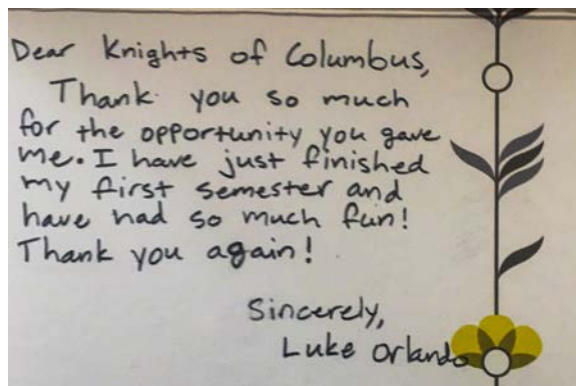 Dear Knights of Columbus,
Thank you so much
for the opportunity you gave
me. I have just finished
my first semester and
have had so much fun!
Thank you again!
Sincerely,
Luke Orlando